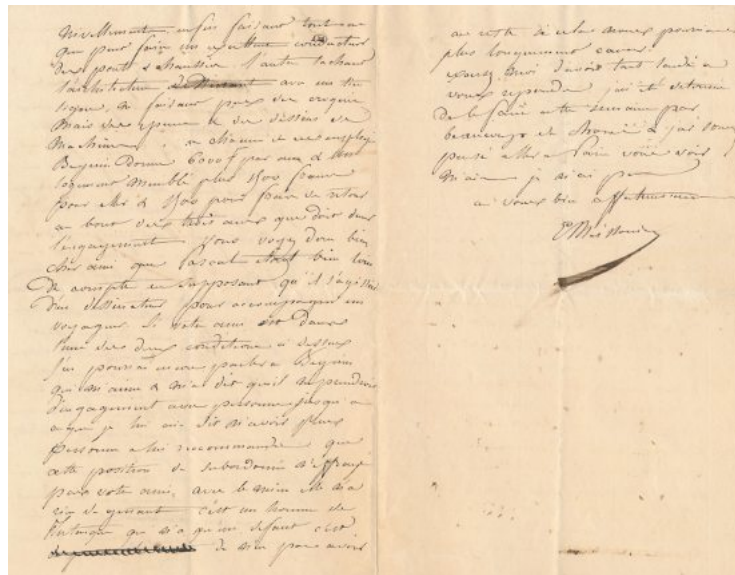 Nivellements, enfin faisant tout ce
que peut faire un excellent conducteur
des ponts & chaussées. l'autre sachant
l'architecture avec un
faisant pas des croquis
mais des épures et des dessins de
Machines. a chacun de ces employés
Beguin Donne 6000 f par an & un
logement Meublé plus 1500 francs
pour aller & 1500 pour frais de retour
au bout des trois ans que doit durer
l'engagement. Vous voyez donc bien
cher ami que Pascal était bien loin
de compte en supposant qu'il s'agissait
d'un dessinateur pour accompagner un
voyageur. Si votre ami est dans
l'une des deux conditions ci dessus
j'en pourrai encore parler a Beguin
qui m'aime & m'a dit qu'il ne prendrait
d'engagement avec personne jusqu'a
ce que je lui aie dit n'avoir plus
personne a lui recommander. que
cette position de subordonné n'effraye
pas votre ami, avec le même elle n'a
rien de gênant c'est un homme de
qui n'a qu'un défaut c'est
de n'en pas avoir
au reste de cela nous pourrons
plus longuement causer.
excusez moi d'avoir tant tardé a
vous repondre j'ai été
de le faire cette semaine par
beaucoup de choses & j'ai
pensé aller a vous voir
mais je n'ai pu
a vous bien affectueusement
EMeissonier